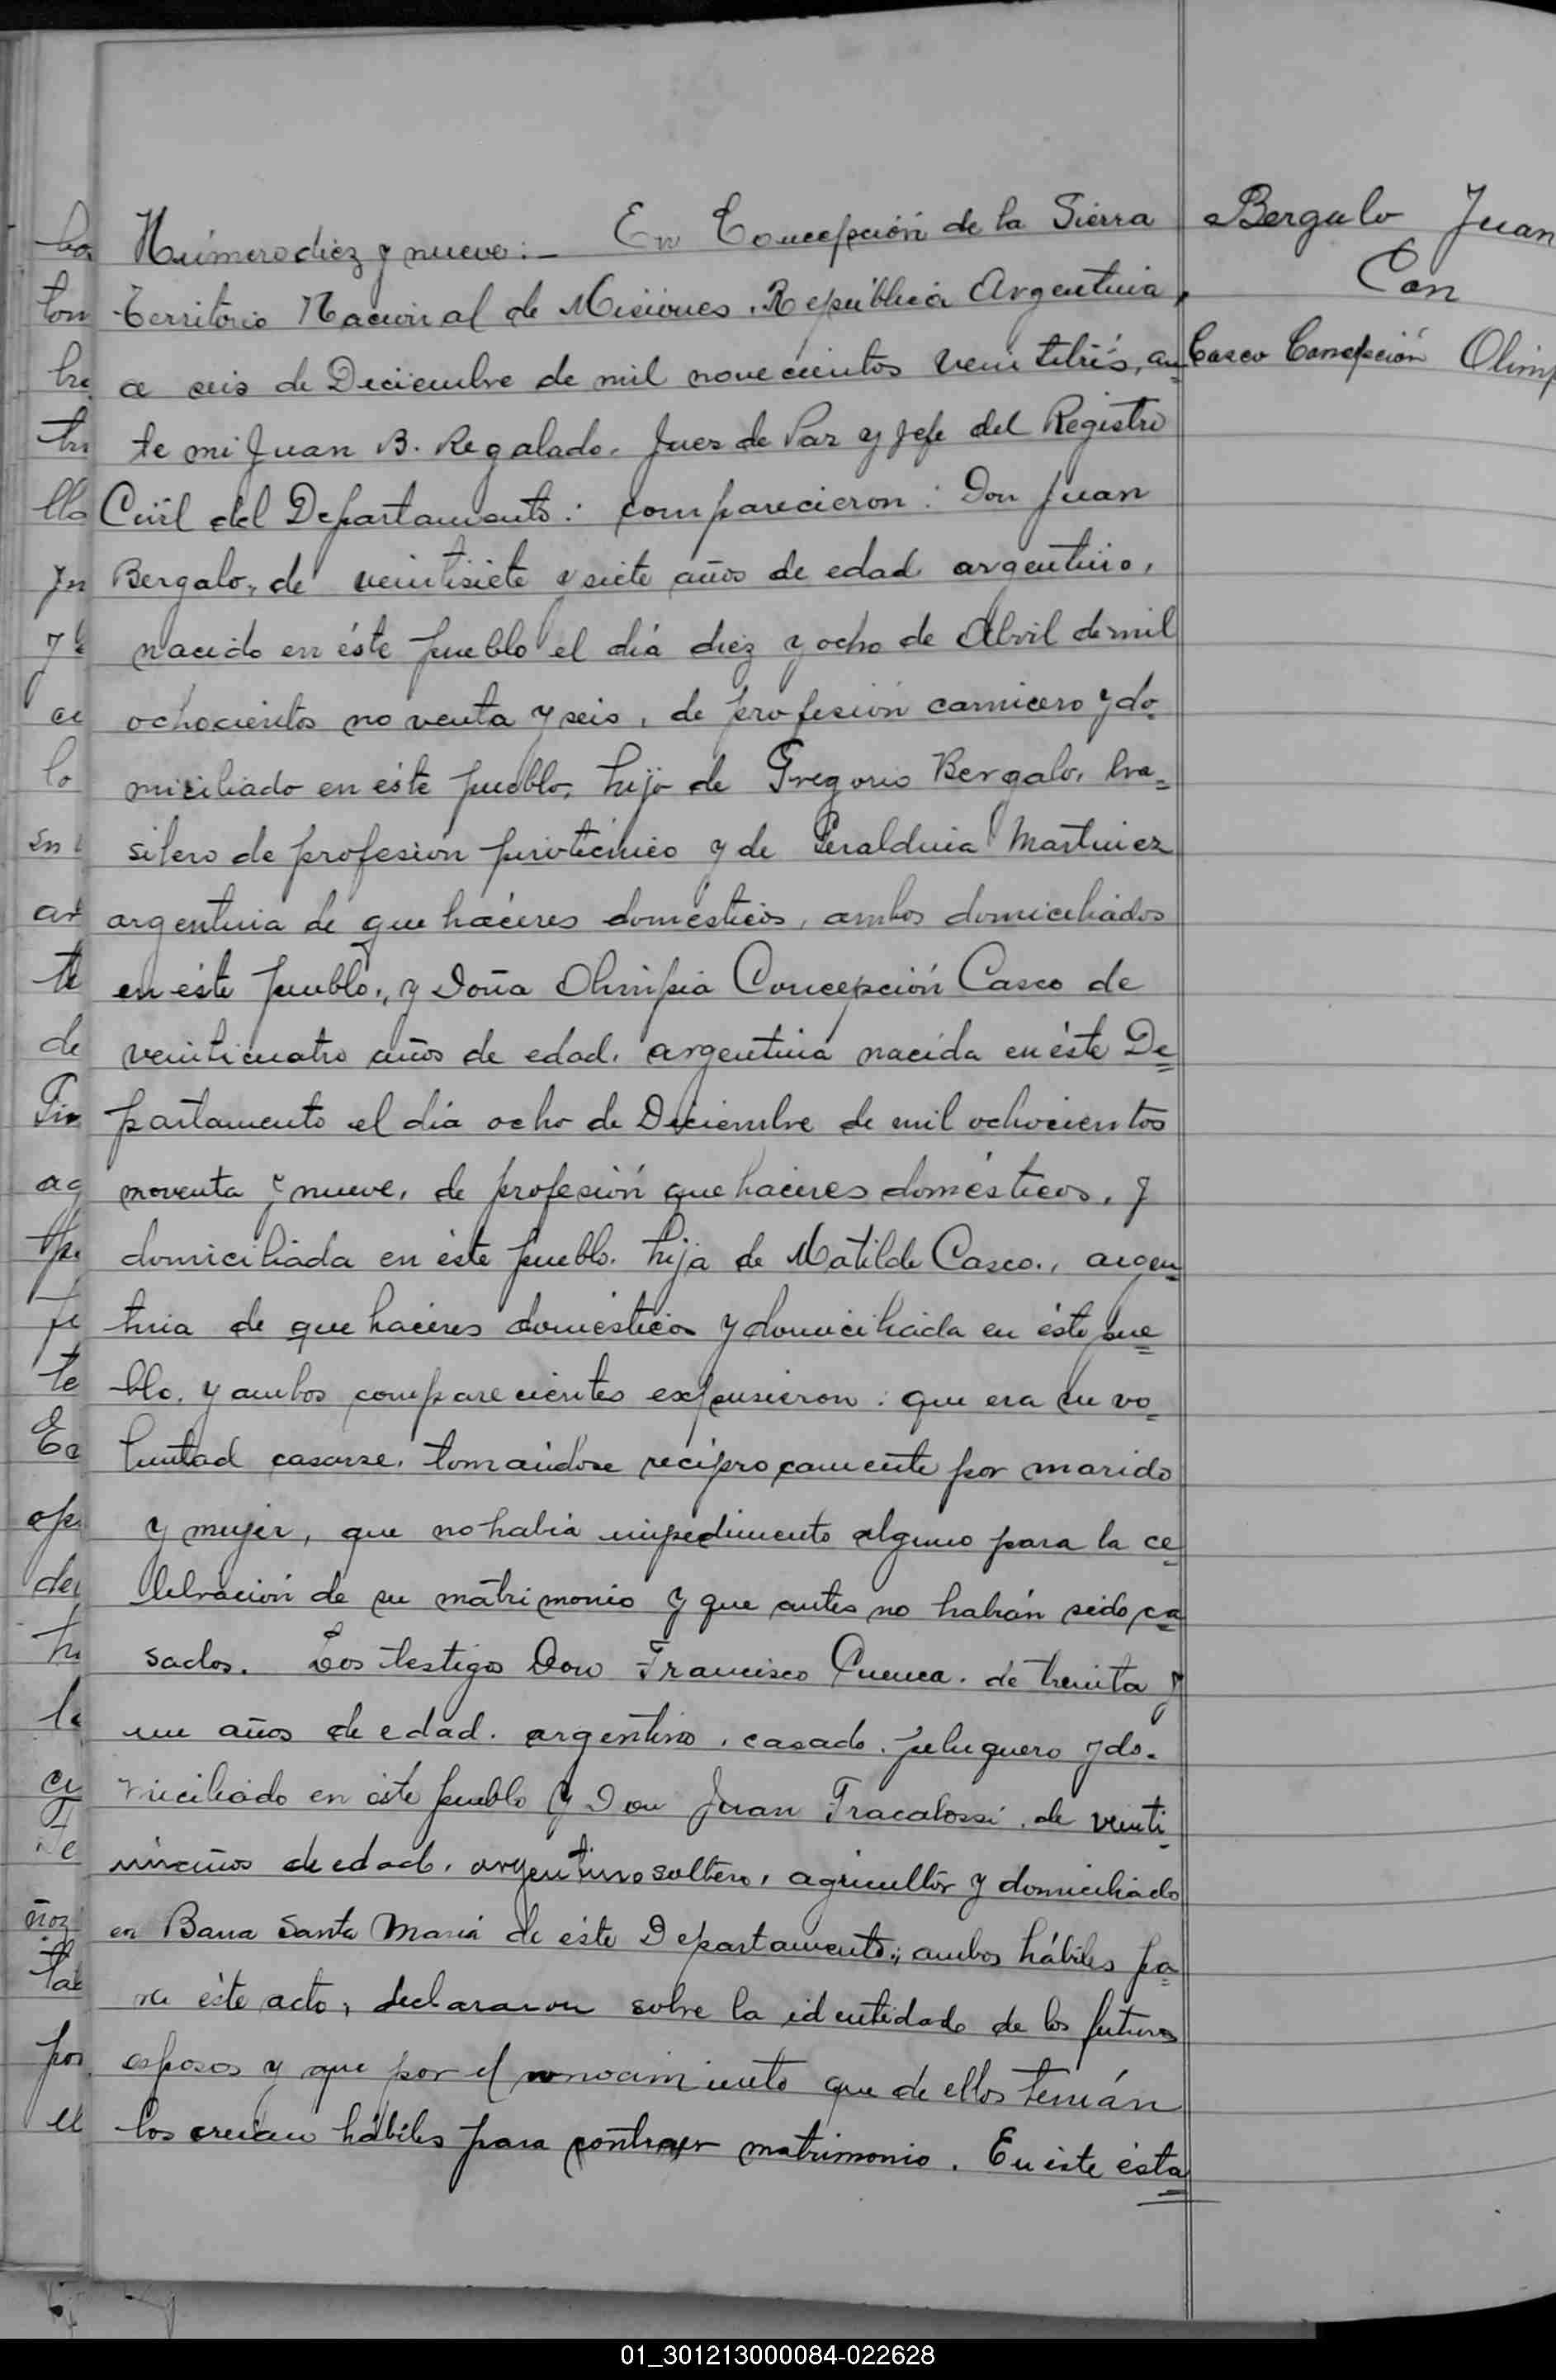 Número diez y nueve:- En Concepción de la Sierra
Territorio Nacional de Misiones, República Argentina,
a seis de Diciembre de mil novecientos veintitrés, an=
te mi Juan B. Regalado. Juez de Paz y Jefe del Registro
Civil del Departamento: comparecieron: Don Juan
Bergalo, de veintisiete y siete años de edad argentino,
nacido en éste pueblo el día diez y ocho de Abril de mil
ochocientos noventa y seis, de profesión carnicero y do-
miciliado en éste pueblo, hijo de Gregorio Bergalo, bra=
silero de profesión pirotécnico y de Geraldina Martinez
argentina de que haceres domésticos, ambos domiciliados
en éste pueblo, y Doña Olimpia Concepción Casco de
veinticuatro años de edad, argentina nacida en éste De=
partamento el día ocho de Diciembre de mil ochocientos
noventa y nueve, de profesión que haceres domésticos, y
domiciliada en éste pueblo. hija de Matilde Casco., argen=
tina de que haceres domésticos y domiciliada en éste pue=
blo. y ambos comparecientes expusieron: que era su vo=
luntad casarse, tomandose recíprocamente por marido
y mujer, que no había impedimento alguno para la ce=
lebración de su matrimonio y que antes no habían sido ca=
sados. Los testigos Don Francisco Cuenca. de treinta y
un años de edad. argentino, casado. peluquero y do-
miciliado en éste pueblo y Don Juan Tracalossi, de veinti=
un años de edad, argentino soltero, agricultor y domiciliado
en Barra Santa María de éste Departamento; ambos hábiles pa=
ra éste acto, declararon sobre la identidad de los futuros
esposos y que por el conocimiento que de ellos tenían
los creían hábiles para contraer matrimonio. En éste ésta=
Bergalo Juan
Con
Casco Concepción Olimp
01_301213000084-022628